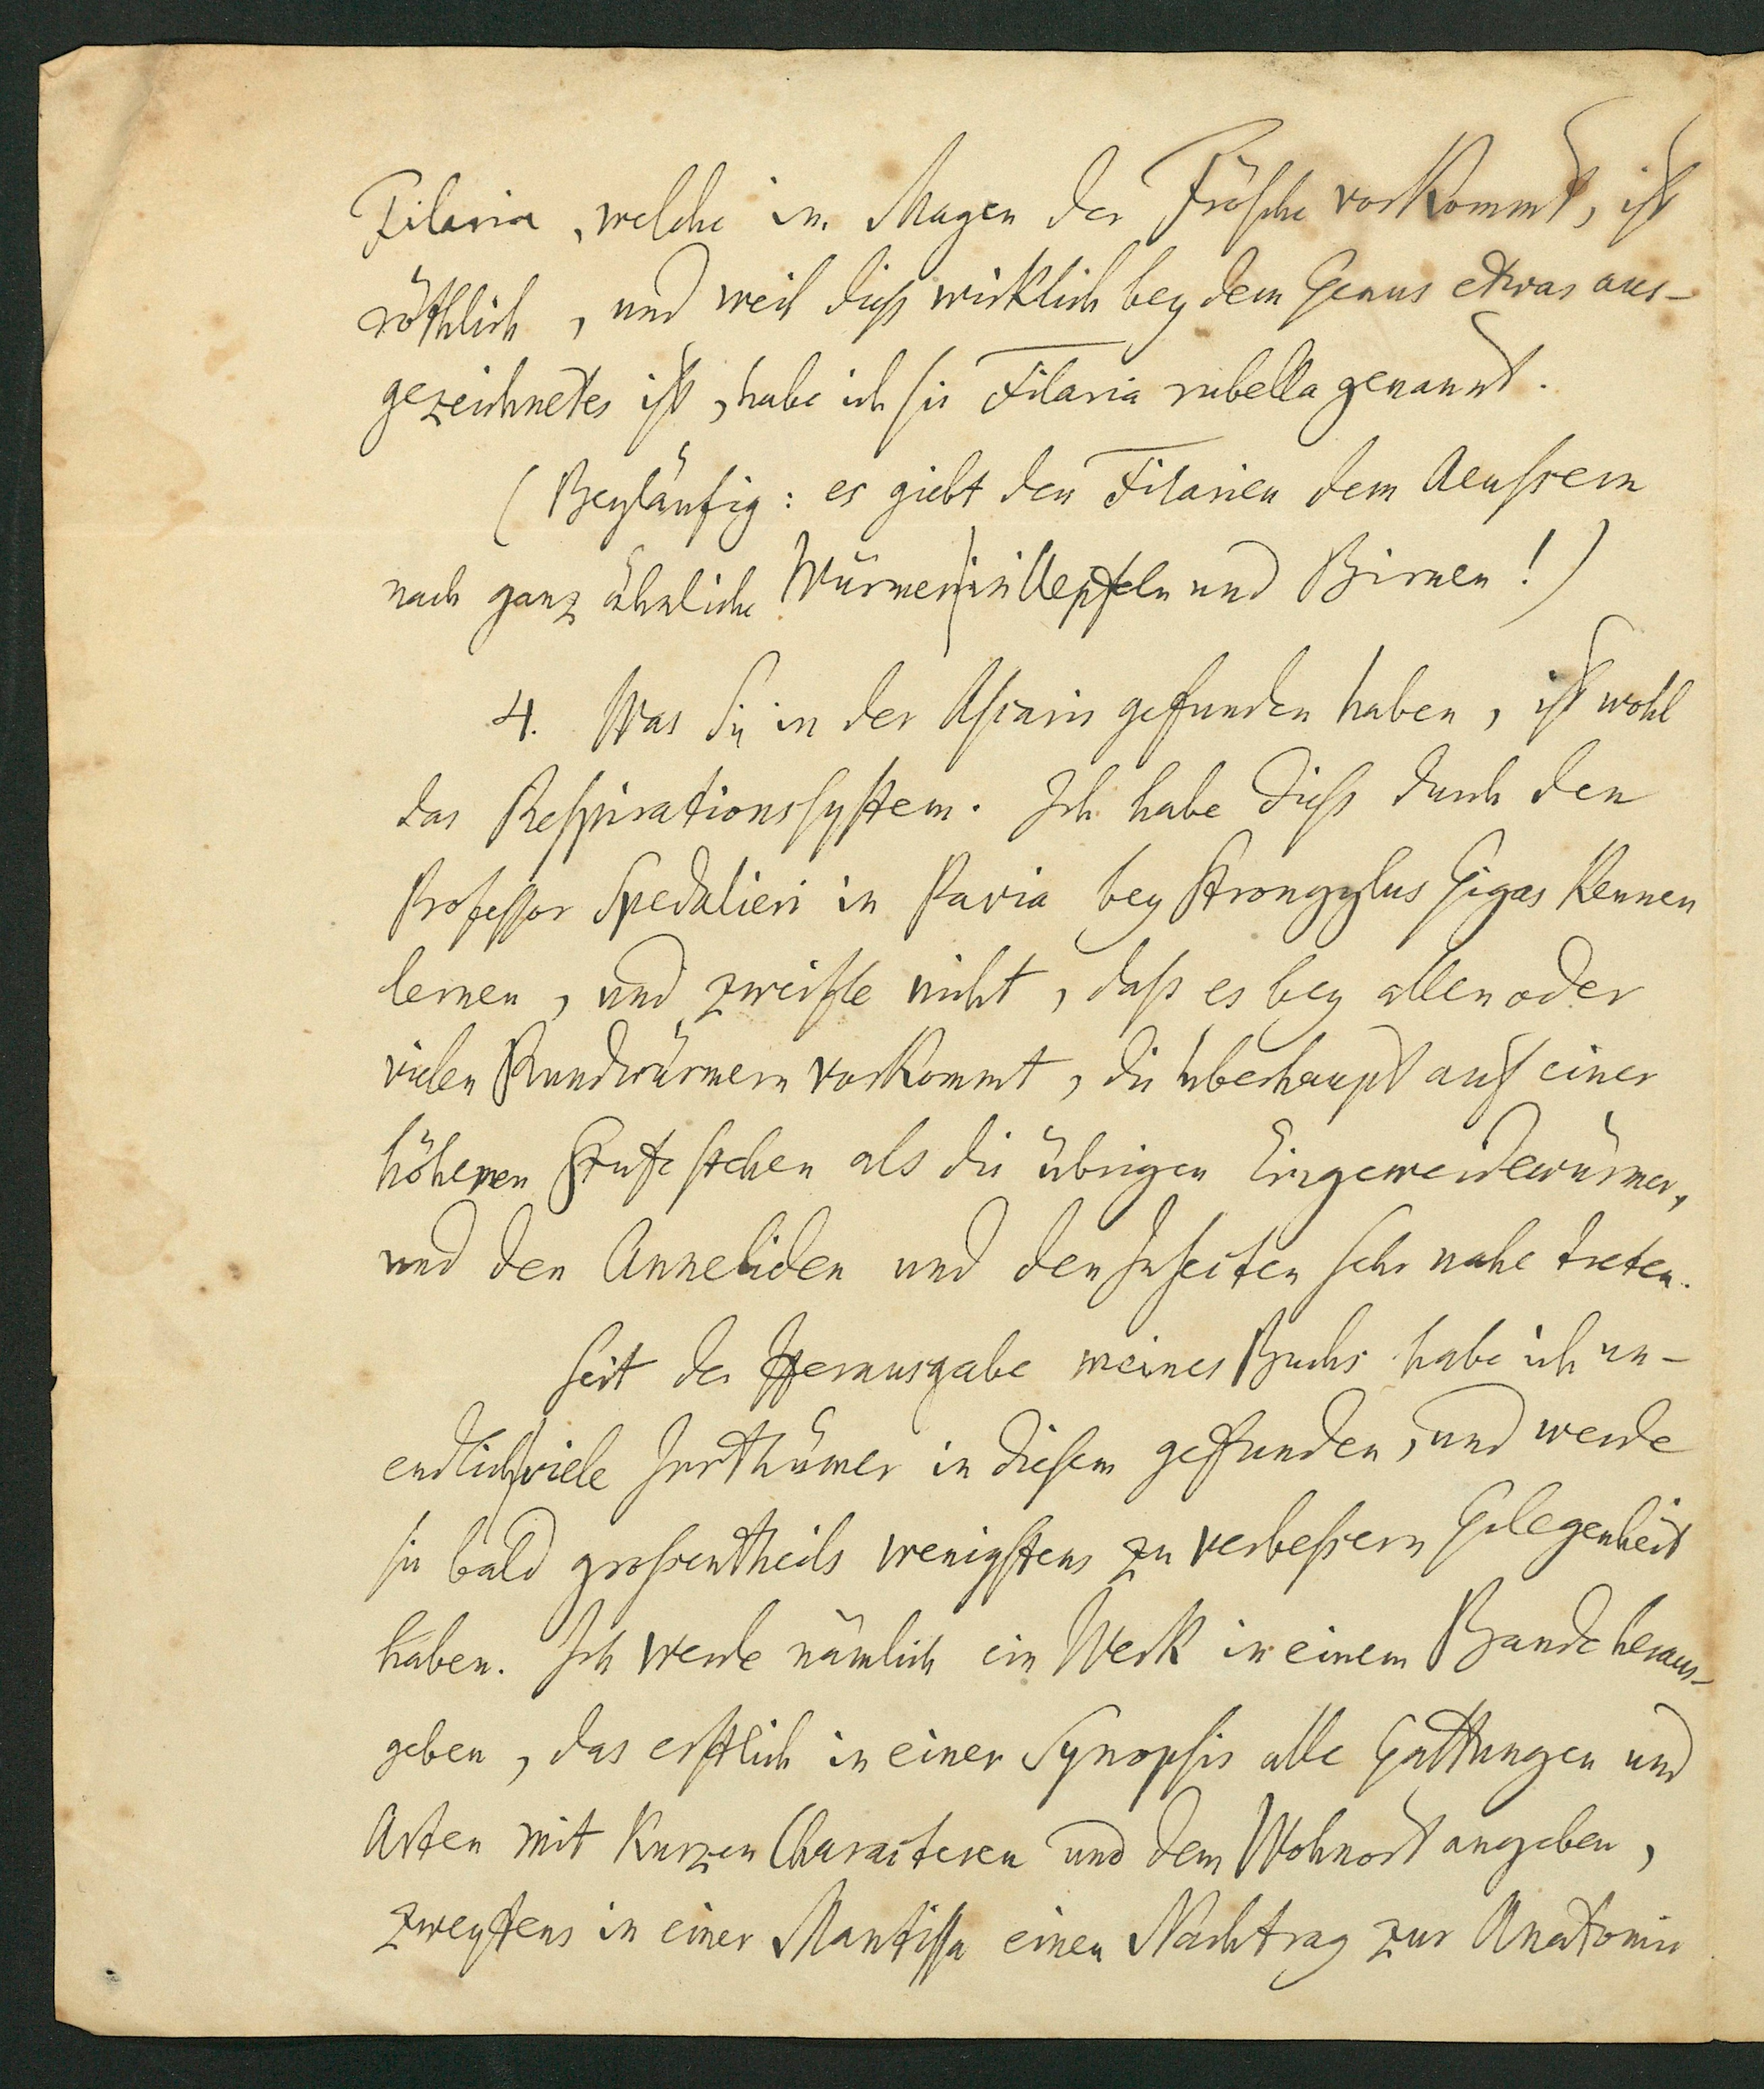 Filaria, welche im Magen der Frösche vorkommt, ist
röthlich, und weil dieß wirklich bey dem Genus etwas aus-
gezeichnetes ist, habe ich sie Filaria rubella genannt.
(Beyläufig: es giebt den Filarien dem Aeußern
nach ganz ähnliche Würmer in Aepfeln und Birnen!)
4. Was Sie in der Ascaris gefunden haben, ist wohl
das Respirationssystem. Ich habe dieß durch den
Professor Spedalieri in Pavia bey Strongylus Gigas kennen
lernen, und zweifle nicht, daß es bey allen oder
vielen Rundwürmern vorkommt, die überhaupt auf einer
höheren Stufe stehen als die übrigen Eingeweidewürmer,
und den Anneliden und den Insecten sehr nahe treten.
Seit der Herausgabe meines Buchs habe ich un-
endlich viele Irrthümer in diesem gefunden, und werde
sie bald großentheils wenigstens zu verbessern Gelegenheit
haben. Ich werde nämlich ein Werk in einem Bande heraus-
geben, das erstlich in einer Synopsis alle Gattungen und
Arten mit kurzen Characteren und dem Wohnort angeben,
zweytens in einer Mantissa einen Nachtrag zur Anatomie